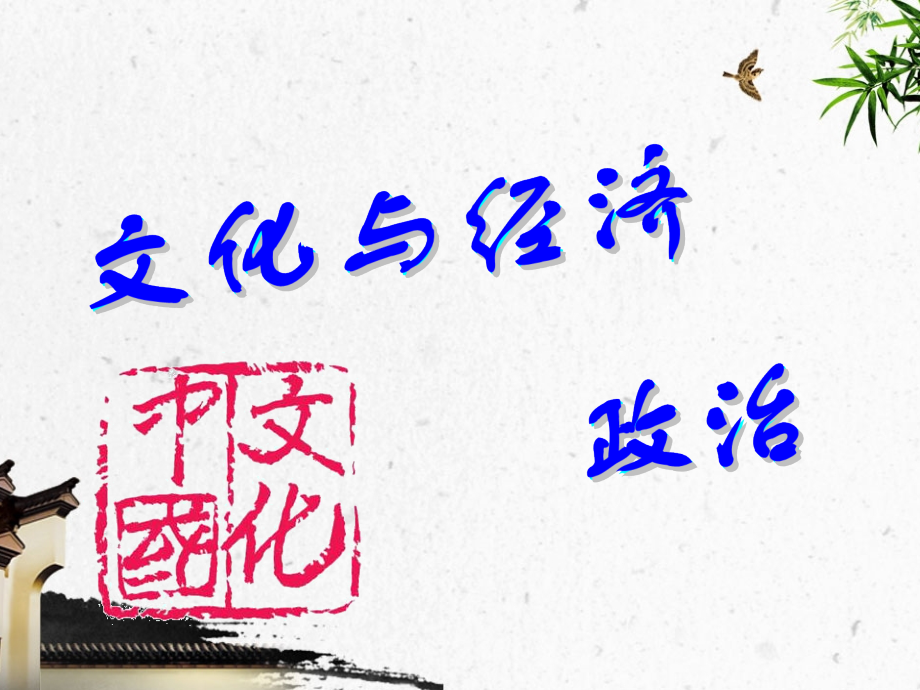 文化与经济
政治
中文
國化